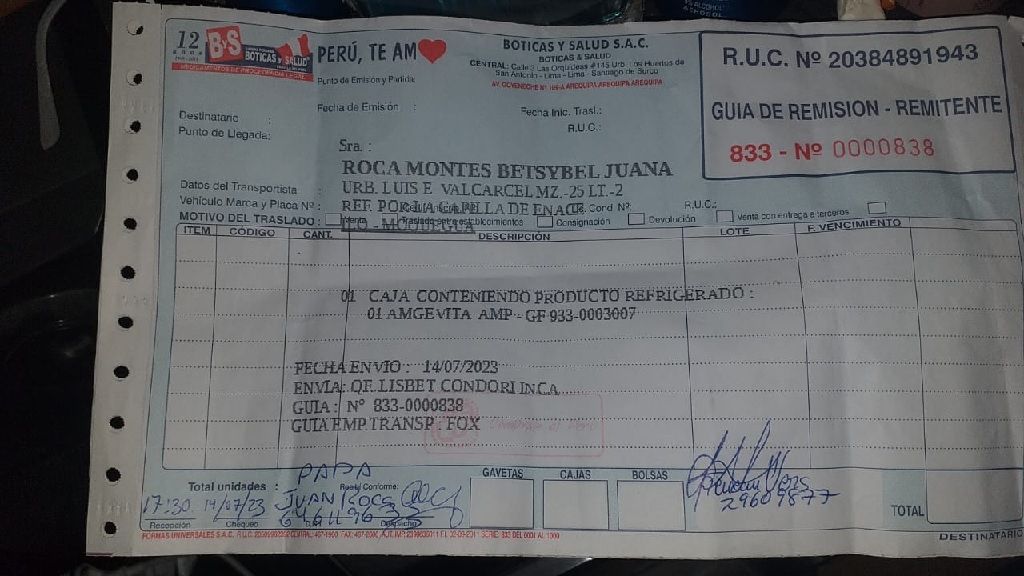 12
B&S BOTICAS Y SALUD
PERÚ, TE AM
BOTICAS Y SALUD S.A.C.
BOTICAS & SALUD
San Antonio - Lima - Lima - Santiago de Surco
R.U.C. Nº 20384891943
GUIA DE REMISION - REMITENTE
833 - Nº 0000838
Punto de Emisión y Partida:
Fecha de Emisión :
Fecha Inic. Trasl.:
Destinatario :
R.U.C.:
Punto de Llegada:
Sra. :
ROCA MONTES BETSYBEL JUANA
Datos del Transportista :
URB. LUIS E VALCARCEL MZ.-25 LT.-2
Vehículo Marca y Placa Nº :
REF. POR LA CAPILLA DE ENACE
Cond Nº:
R.U.C.:
MOTIVO DEL TRASLADO :
Venta
Traslado entre establecimientos
Consignación
Devolución
Venta con entrega a terceros
ILO - MOQUEGUA
ITEM CÓDIGO CANT. DESCRIPCIÓN LOTE F. VENCIMIENTO
01 CAJA CONTENIENDO PRODUCTO REFRIGERADO :
01 AMGEVITA AMP - GF 933-0003007
FECHA ENVIO : 14/07/2023
ENVIA: QF. LISBET CONDORI INCA
GUIA : Nº 833-0000838
GUIA EMP. TRANSP. FOX
PAPA
GAVETAS CAJAS BOLSAS
Total unidades :
Recibí Conforme:
17:30 14/07/23 JUAN
29609877
TOTAL
Recepción Chequeo Despacho
DESTINATARIO